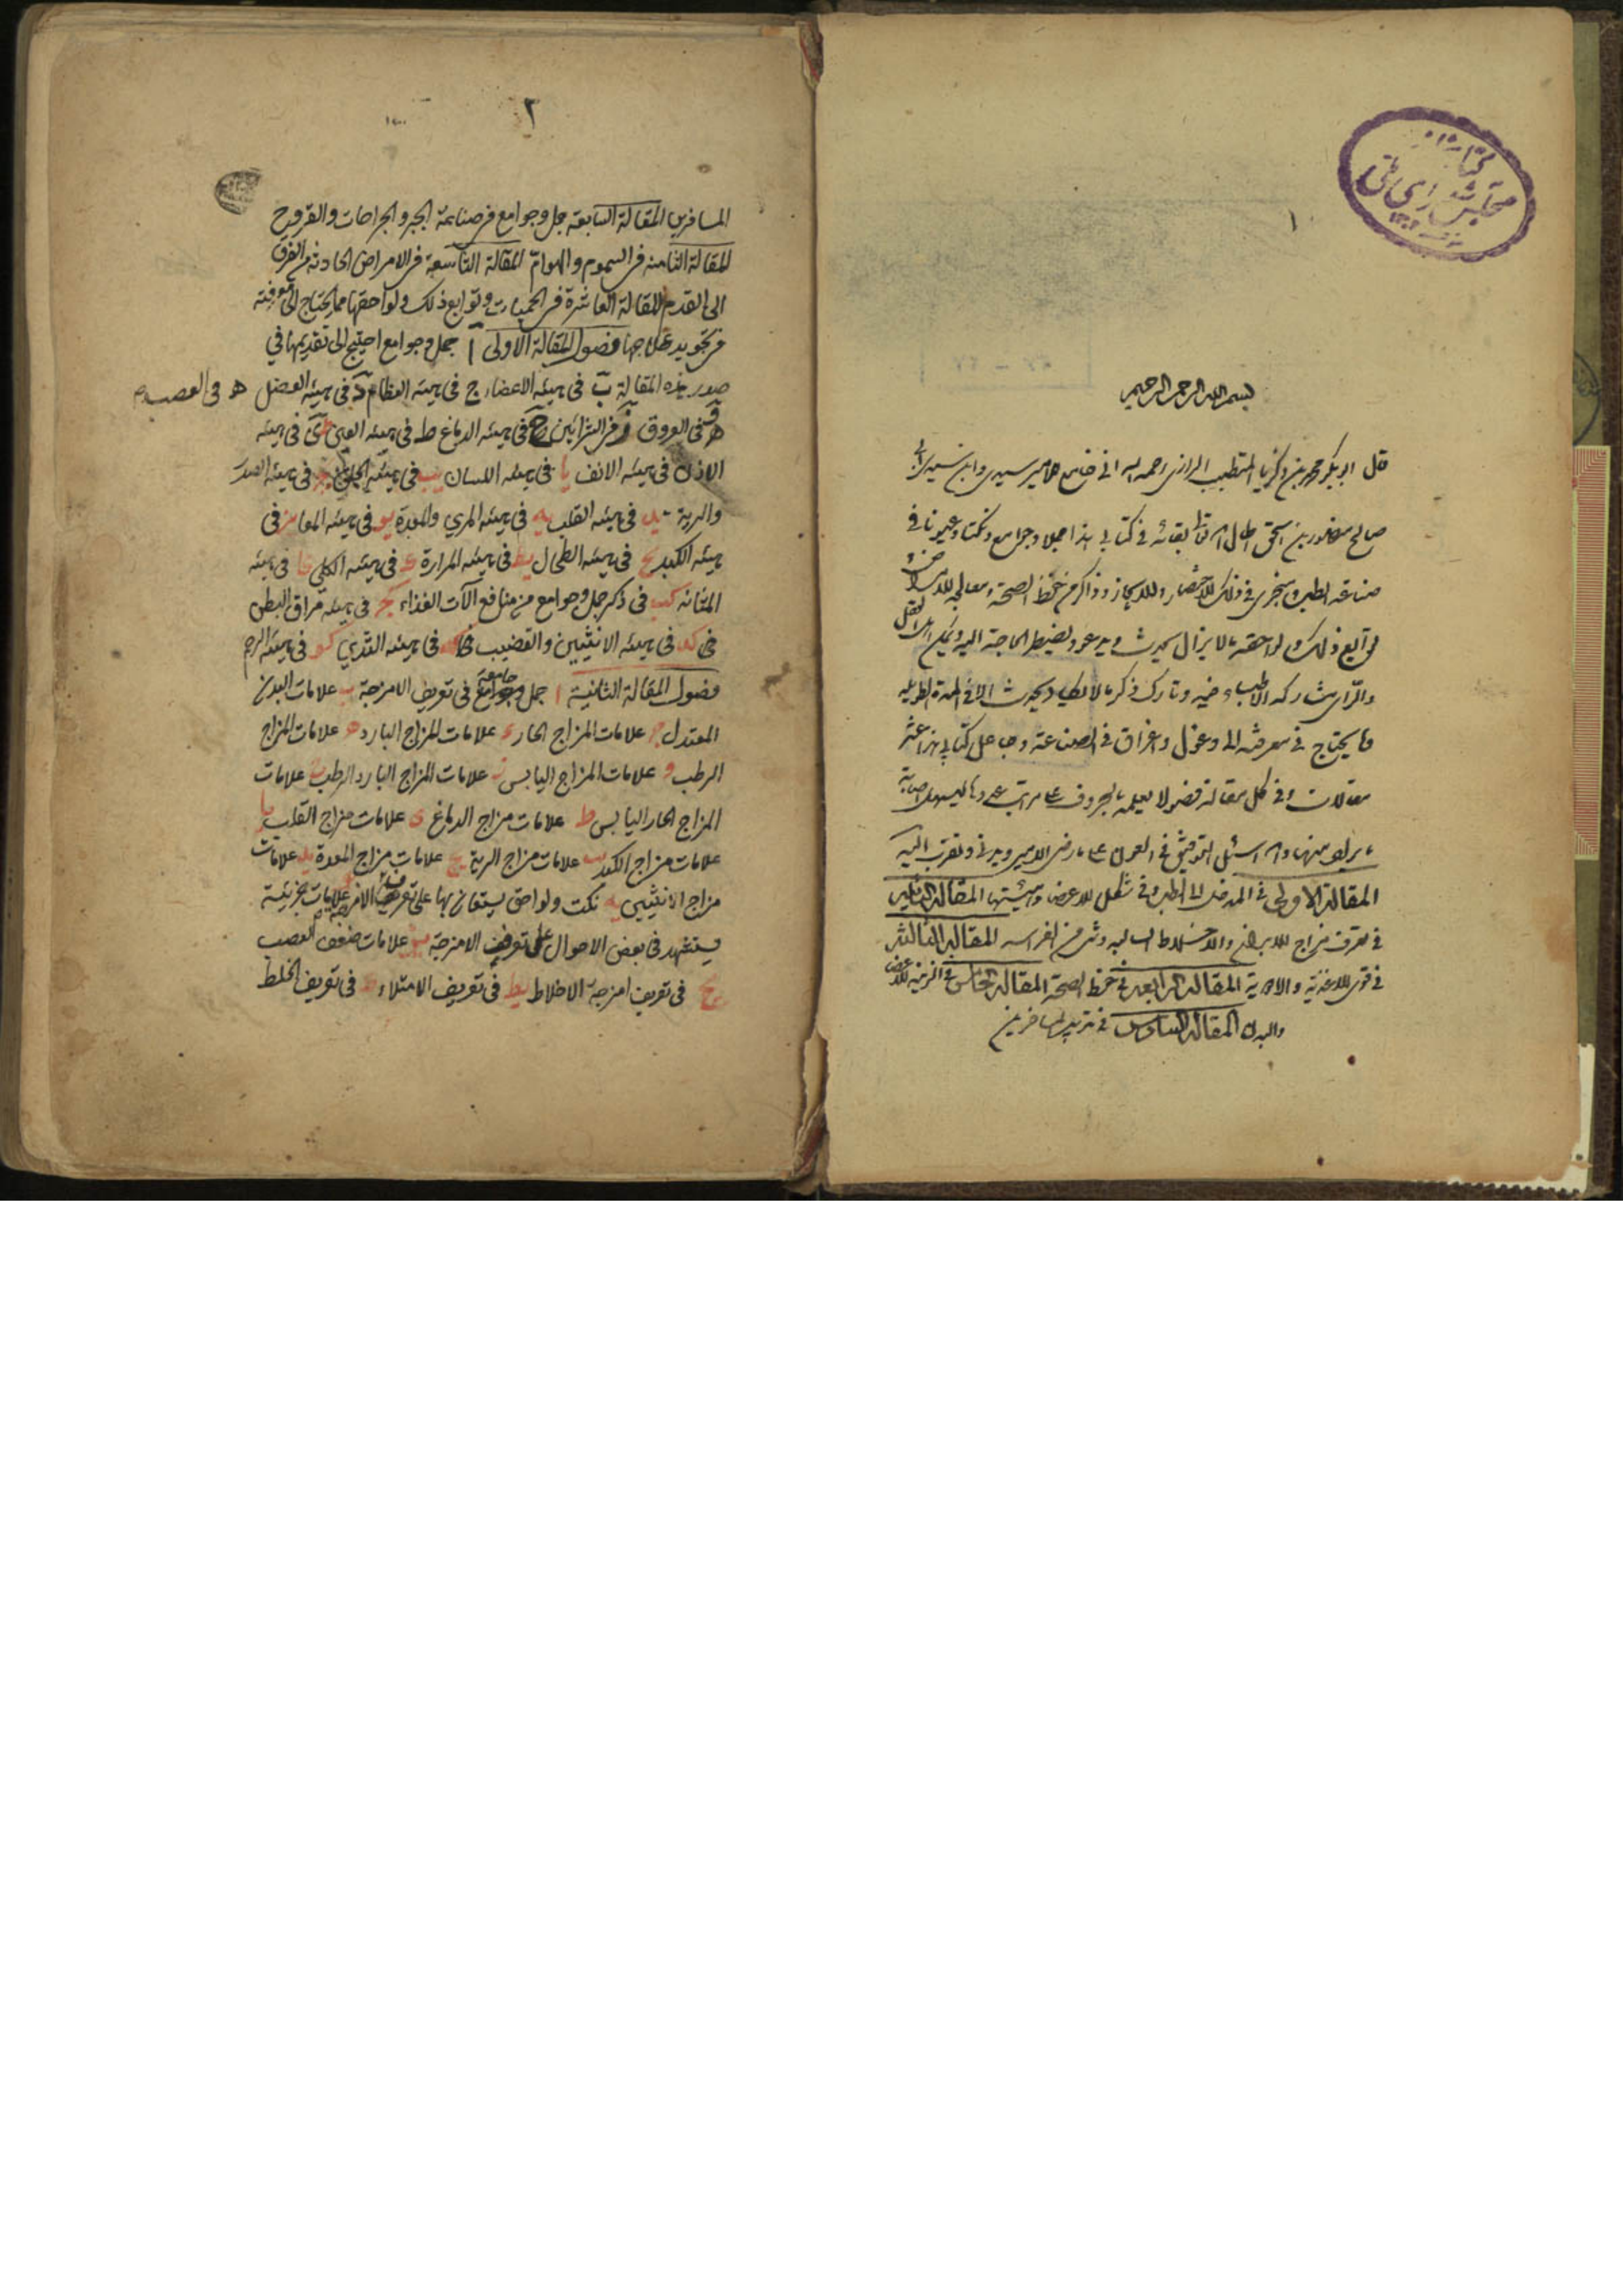 كتابخانه
مجلس شورای ملی
١
بسم الله الرحمن الرحيم
قال ابو بكر محمد بن زكريا المتطبب الرازي رحمه الله اني جامع للامير سيدي وابن سيدي ابي
صالح منصور بن اسحق اطال الله بقائه في كتابي هذا جملا وجوامع ونكتا وعيونا في
صناعة الطب ومتحري في ذلك للاختصار والايجاز وذاكر من حفظ الصحة ومعالجة الامراض
وتوابع ذلك ولواحقه ما لا يزال يحدث
والرأي مشاركة الاطباء فيه وتارك ذكر ما لا يكاد يحدث الا في المدة الطويلة
وما يحتاج في معرفته الى وغول واغراق في الصناعة وجاعل كتابي هذا عشر
مقالات وفي كل مقالة فصولا معلمة بالحروف
ما يراد منها والله اسئل التوفيق في العون على ما رضى الامير ويدني ويقرب اليه
المقالة الاولى في المدخل الى الطب وفي شكل الاعضاء وهيئتها المقالة الثانية
في تعرف مزاج الابدان والاخلاط الغالبة وشئ من الفراسة المقالة الثالثة
في قوى الاغذية والادوية المقالة الرابعة في حفظ الصحة المقالة الخامسة في الزينة للاعضاء
والبدن المقالة السادسة في تدبير المسافرين
٢
المسافرين المقالة السابعة جمل وجوامع في صناعة الجبر والجراحات والقروح
المقالة الثامنة في السموم والهوام المقالة التاسعة في الامراض الحادثة من الفرق
الى القدم المقالة العاشرة في الحميات وتوابع ذلك ولواحقها مما يحتاج الى معرفته
في تجويد علاجها فصول المقالة الاولى ا جمل وجوامع احتيج الى تقديمها في
صدر هذه المقالة ب في هيئة الاعضاء ج في هيئة العظام د في هيئة العضل ه في العصب
و في العروق ز في الشرائين ح في هيئة الدماغ ط في هيئة العين ى في هيئة
الاذن في هيئة الانف يا في هيئة اللسان يب في هيئة الحلق يج في هيئة الصدر
والرية يد في هيئة القلب يه في هيئة المري والمعدة يو في هيئة المعا يز في
هيئة الكبد يح في هيئة الطحال يط في هيئة المرارة ك في هيئة الكلي كا في هيئة
المثانة كب في ذكر جمل وجوامع من منافع الآت الغذاء كج في هيئة مراق البطن
كد في هيئة الانثيين والقضيب كه في هيئة الثدي كو في هيئة الرحم
فصول المقالة الثانية ا جمل وجوامع جامعة في تعريف الامزجة ب علامات البدن
المعتدل ج علامات المزاج الحار د علامات المزاج البارد ه علامات المزاج
الرطب و علامات المزاج اليابس ز علامات المزاج البارد الرطب ح علامات
المزاج الحار اليابس ط علامات مزاج الدماغ ى علامات مزاج القلب يا
علامات مزاج الكبد يب علامات مزاج الرية يج علامات مزاج المعدة يد علامات
مزاج الانثيين يه نكت ولواحق يستعان بها على تعريف الامزجة يو علامات جزئية
يستشهد في بعض الاحوال على تعريف الامزجة يز علامات ضعف العصب
يح في تعريف امزجة الاخلاط يط في تعريف الامتلاء ك في تعريف الخلط